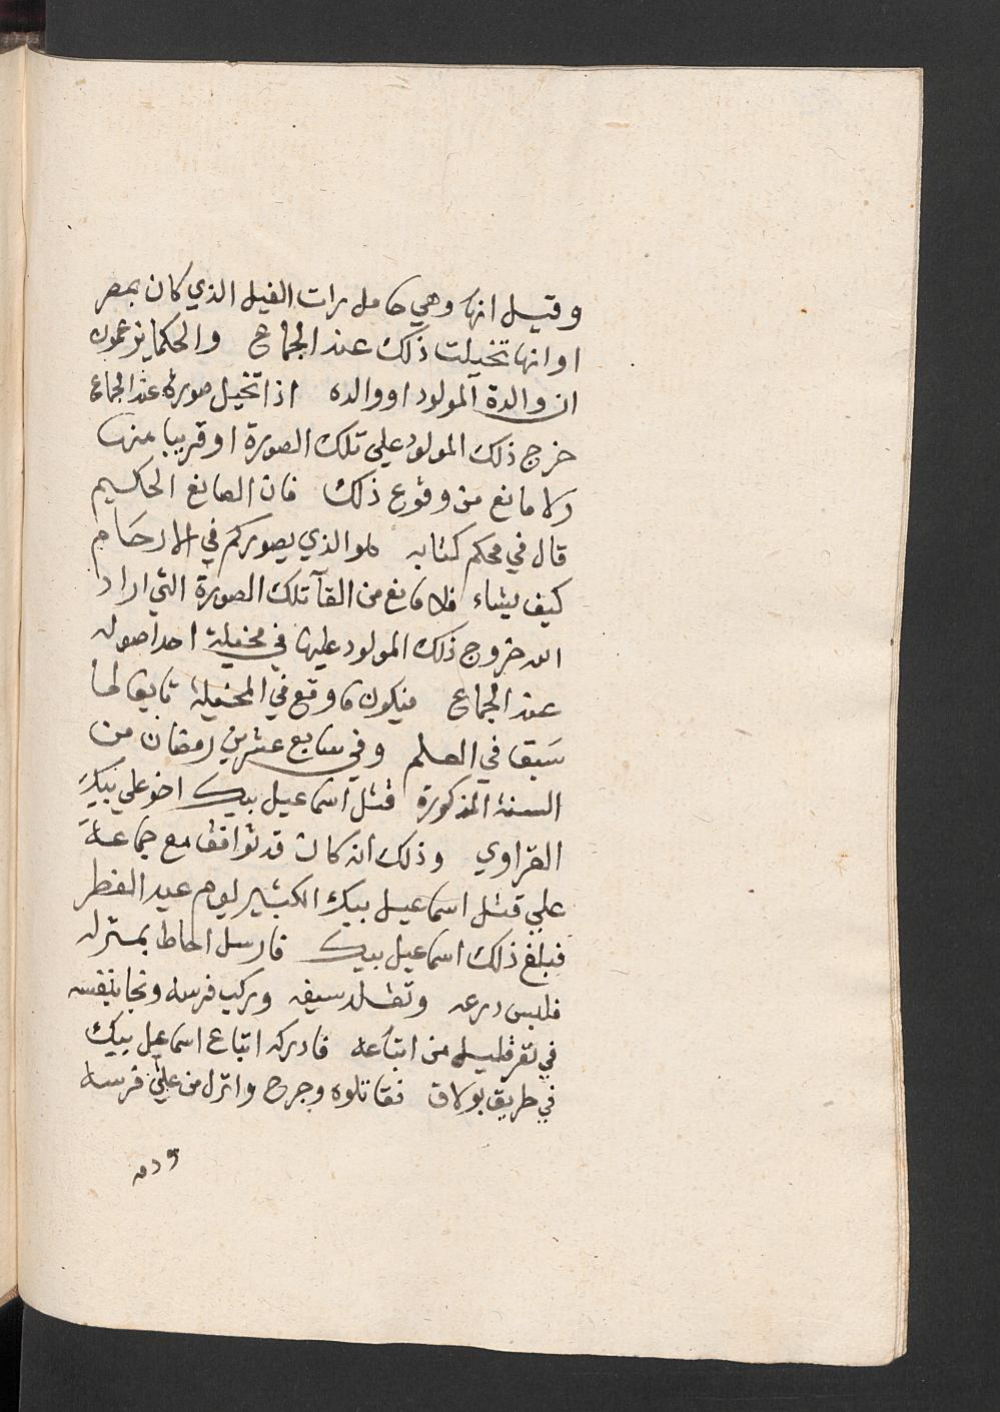 وقيل انها وهي حامل رات الفيل الذي كان بمصر
او انها تخيلت ذلك عند الجماع والحكما يزعمون
ان والدة المولود او والده اذا تخيل صورة عند الجماع
خرج ذلك المولود علي تلك الصورة او قريبا منها
ولا مانع من وقوع ذلك فان الصانع الحكيم
قال في محكم كتابه هو الذي يصوركم في الارحام
كيف يشاء فلا مانع من القآ تلك الصورة التي اراد
الله خروج ذلك المولود عليها في مخيلة احد اصوله
عند الجماع فيكون ما وقع في المخيلة تابعا لما
سبق في العلم وفي سابع عشرين رمضان من
السنة المذكورة قتل اسماعيل بيك اخو علي بيك
الغزاوي وذلك انه كان قد توافق مع جماعة
علي قتل اسماعيل بيك الكبير يوم عيد الفطر
فبلغ ذلك اسماعيل بيك فارسل احاط بمنزله
فلبس درعه وتقلد سيفه وركب فرسه ونجا بنفسه
في نفر قليل من اتباعه فادركه اتباع اسماعيل بيك
في طريق بولاق فقاتلوه وجرح وانزل من علي فرسه